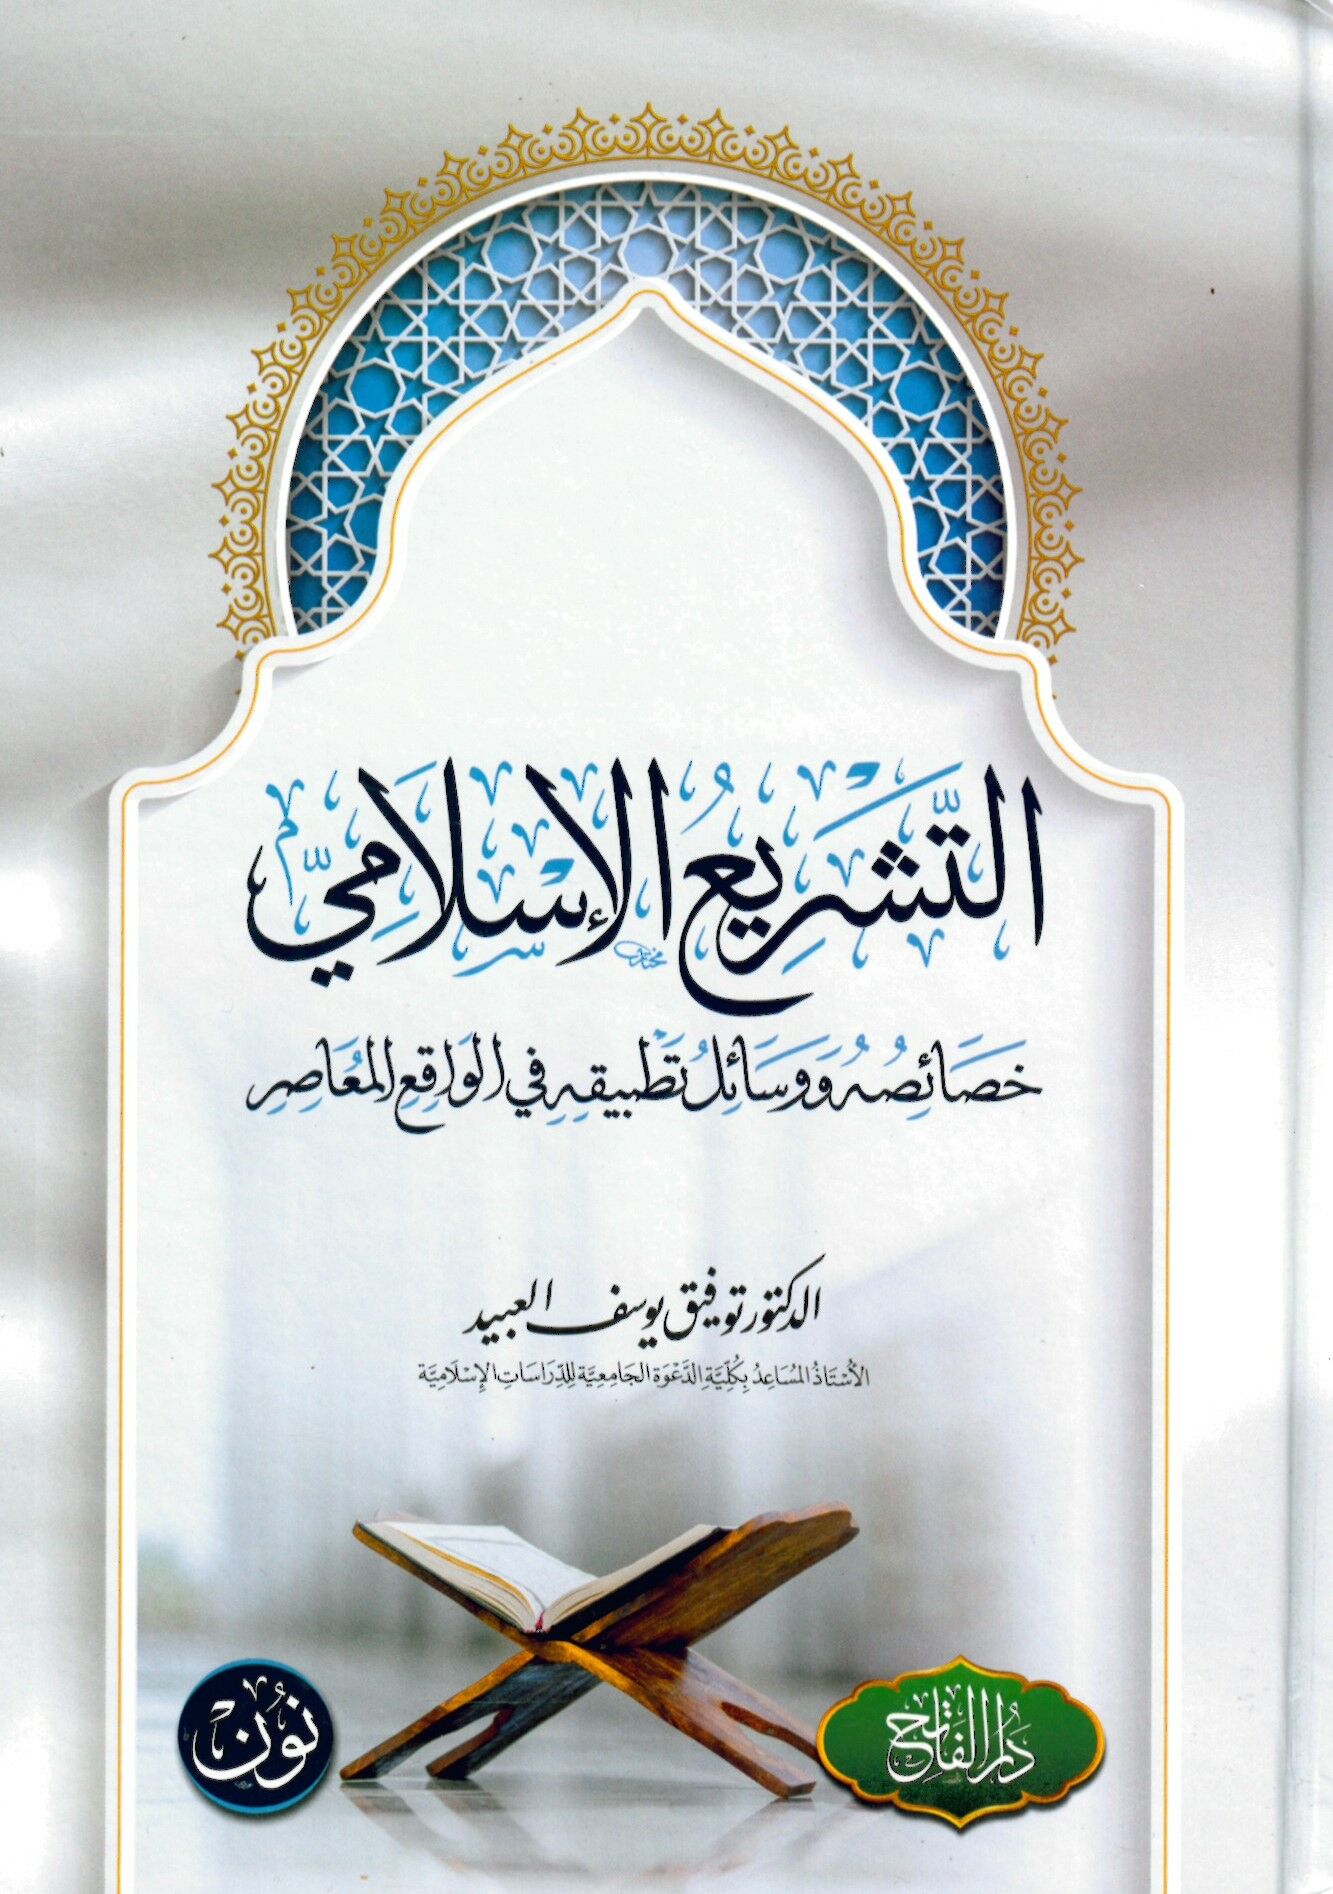 التَّشْرِيعُ الإِسْلَامِيُّ
خَصَائِصُهُ وَوَسَائِلُ تَطْبِيقِهِ فِي الوَاقِعِ المُعَاصِرِ
الدكتور توفيق يوسف العبيد
الأُسْتَاذُ المُسَاعِدُ بِكُلِّيَّةِ الدَّعْوَةِ الجَامِعِيَّةِ لِلدِّرَاسَاتِ الإِسْلَامِيَّةِ
دَارُ الفَاتِح
نُون